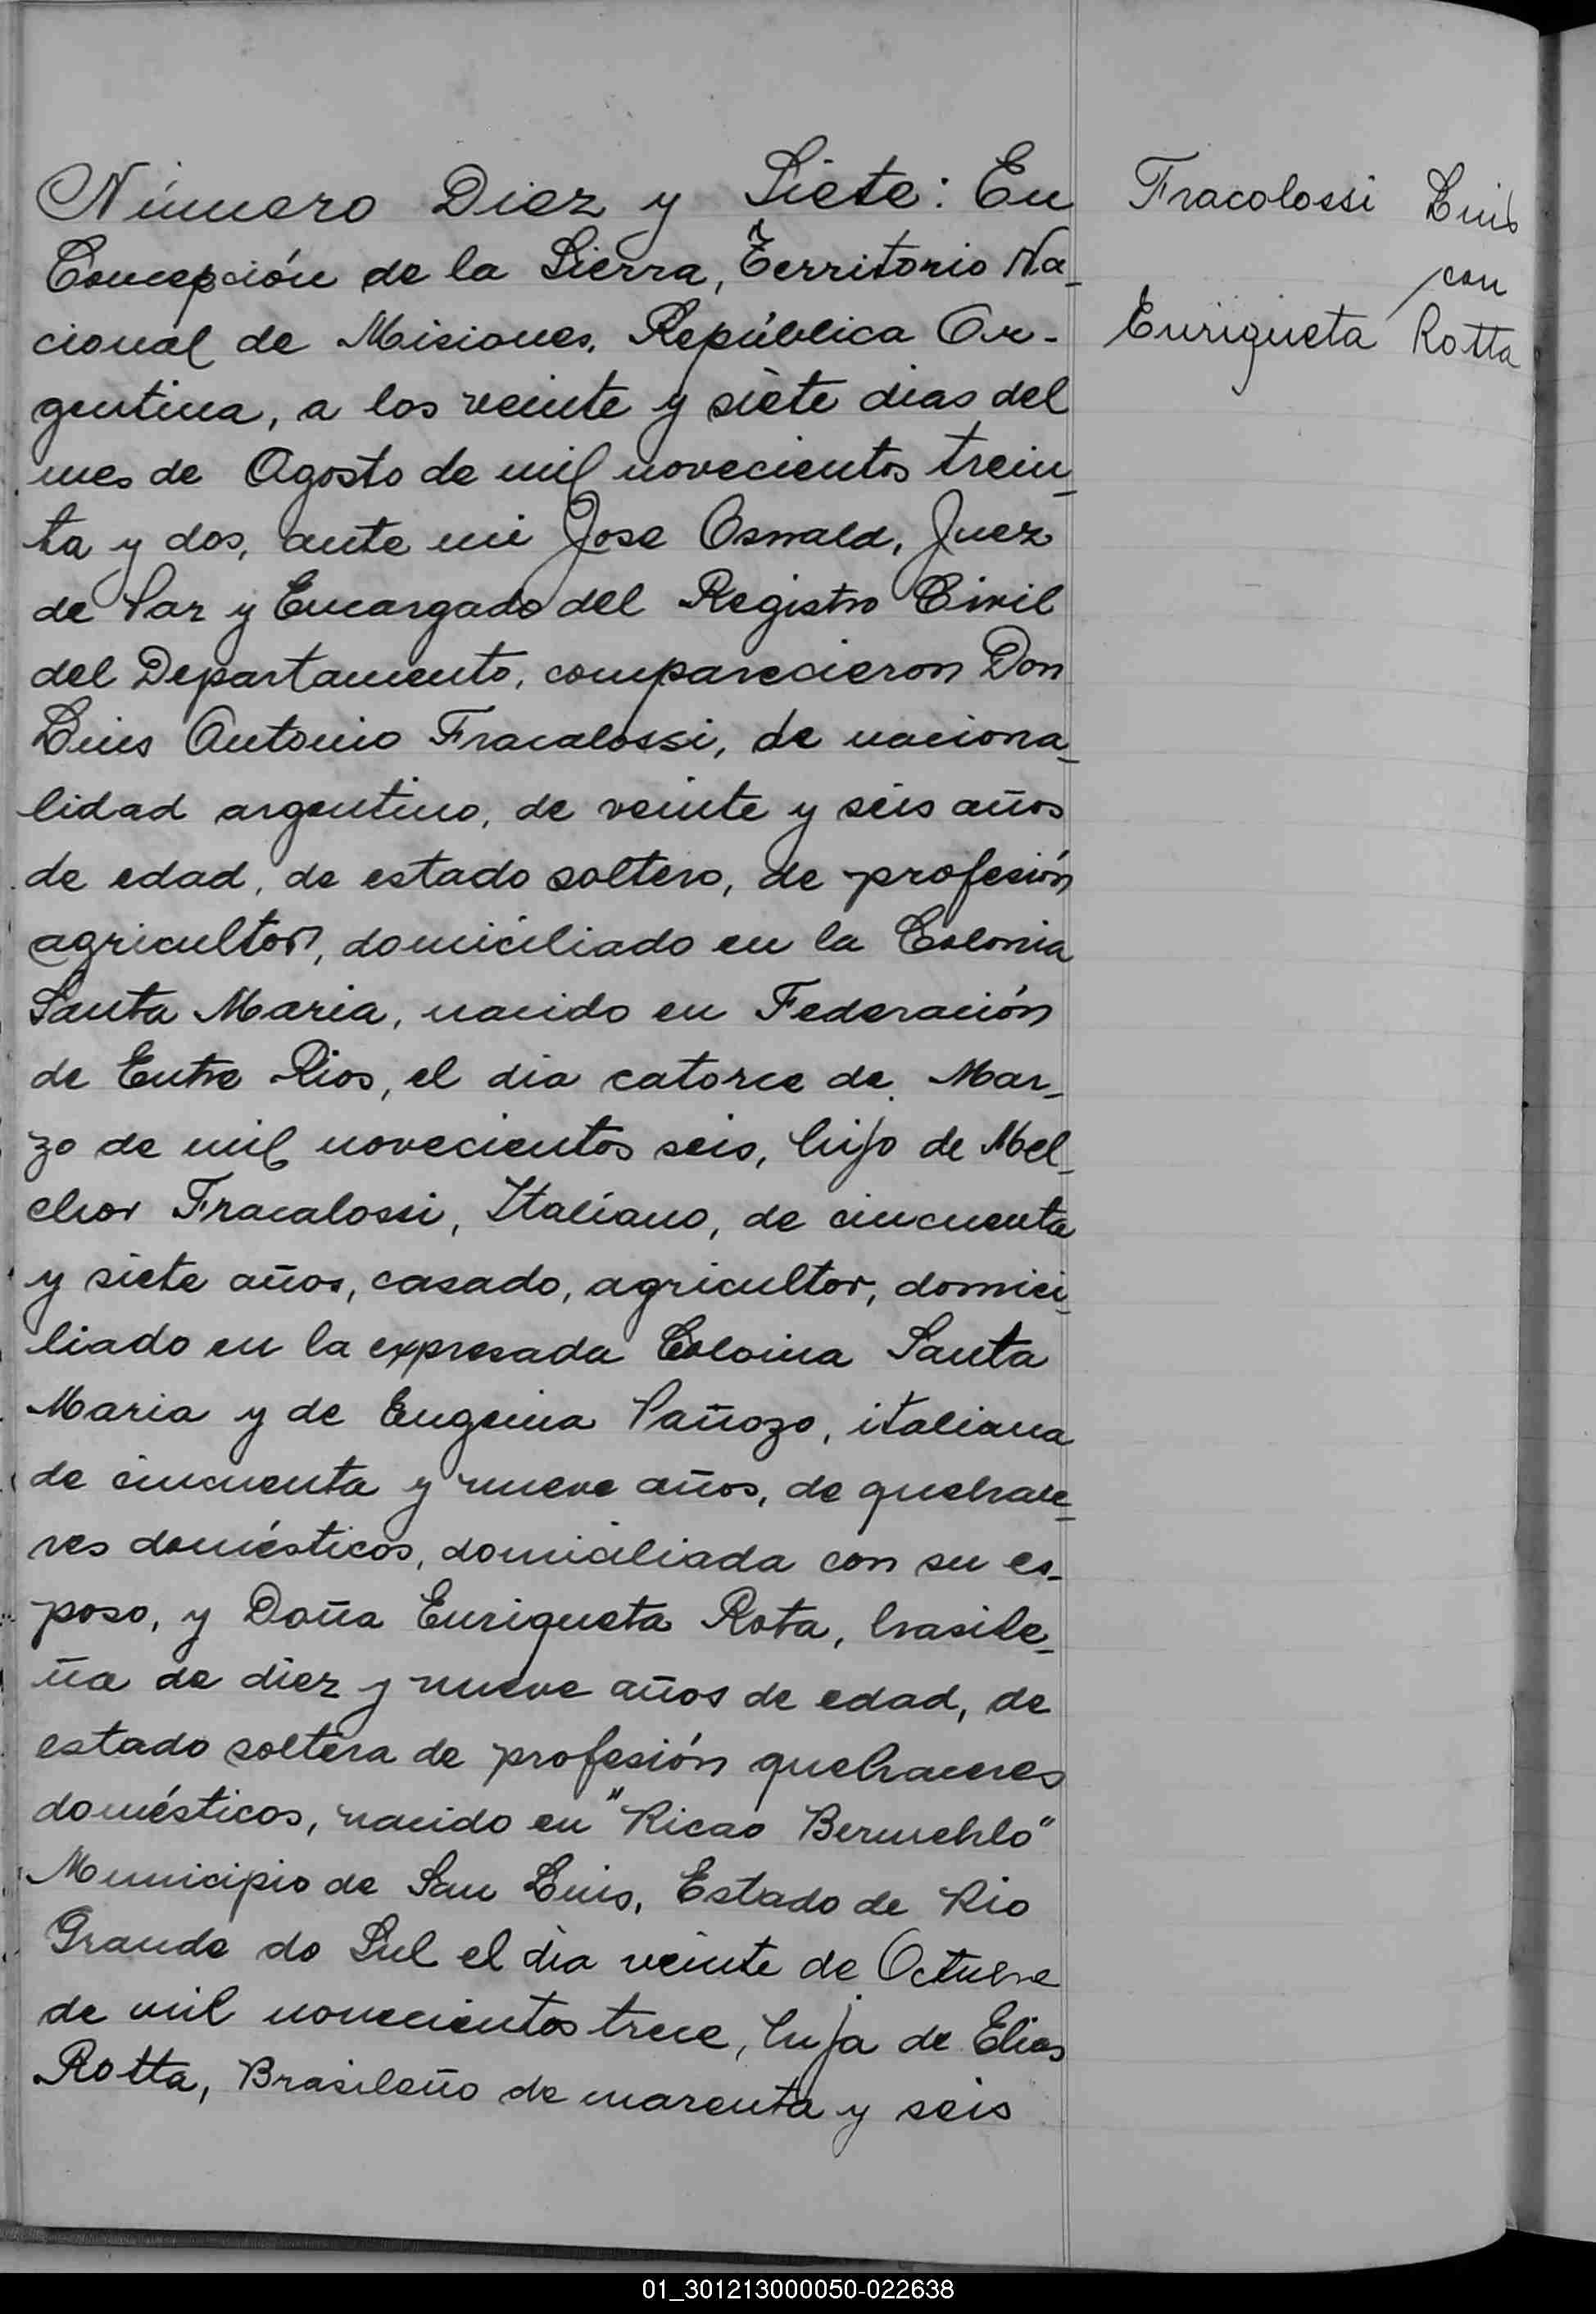 Número Diez y Siete: En
Concepción de la Sierra, Territorio Na-
cional de Misiones, República Ar-
gentina, a los veinte y siete dias del
mes de Agosto de mil novecientos trein-
ta y dos, ante mi Jose Oswald, Juez
de Paz y Encargado del Registro Civil
del Departamento, comparecieron Don
Luis Antonio Fracalossi, de naciona-
lidad argentino, de veinte y seis años
de edad, de estado soltero, de profesión
agricultor, domiciliado en la Colonia
Santa Maria, nacido en Federación
de Entre Rios, el dia catorce de Mar-
zo de mil novecientos seis, hijo de Mel-
chor Fracalossi, Italiano, de cincuenta
y siete años, casado, agricultor, domici-
liado en la expresada Colonia Santa
Maria y de Eugenia Pañozo, italiana
de cincuenta y nueve años, de quehace-
res domésticos, domiciliada con su es-
poso, y Doña Enriqueta Rota, brasile-
ña de diez y nueve años de edad, de
estado soltera de profesión quehaceres
domésticos, nacido en "Ricao
Municipio de San Luis, Estado de Rio
Grande do Sul el dia veinte de Octubre
de mil novecientos trece, hija de Elias
Rotta, Brasileño de cuarenta y seis
Fracolossi Luis
con
Enriqueta Rotta
01_301213000050-022638